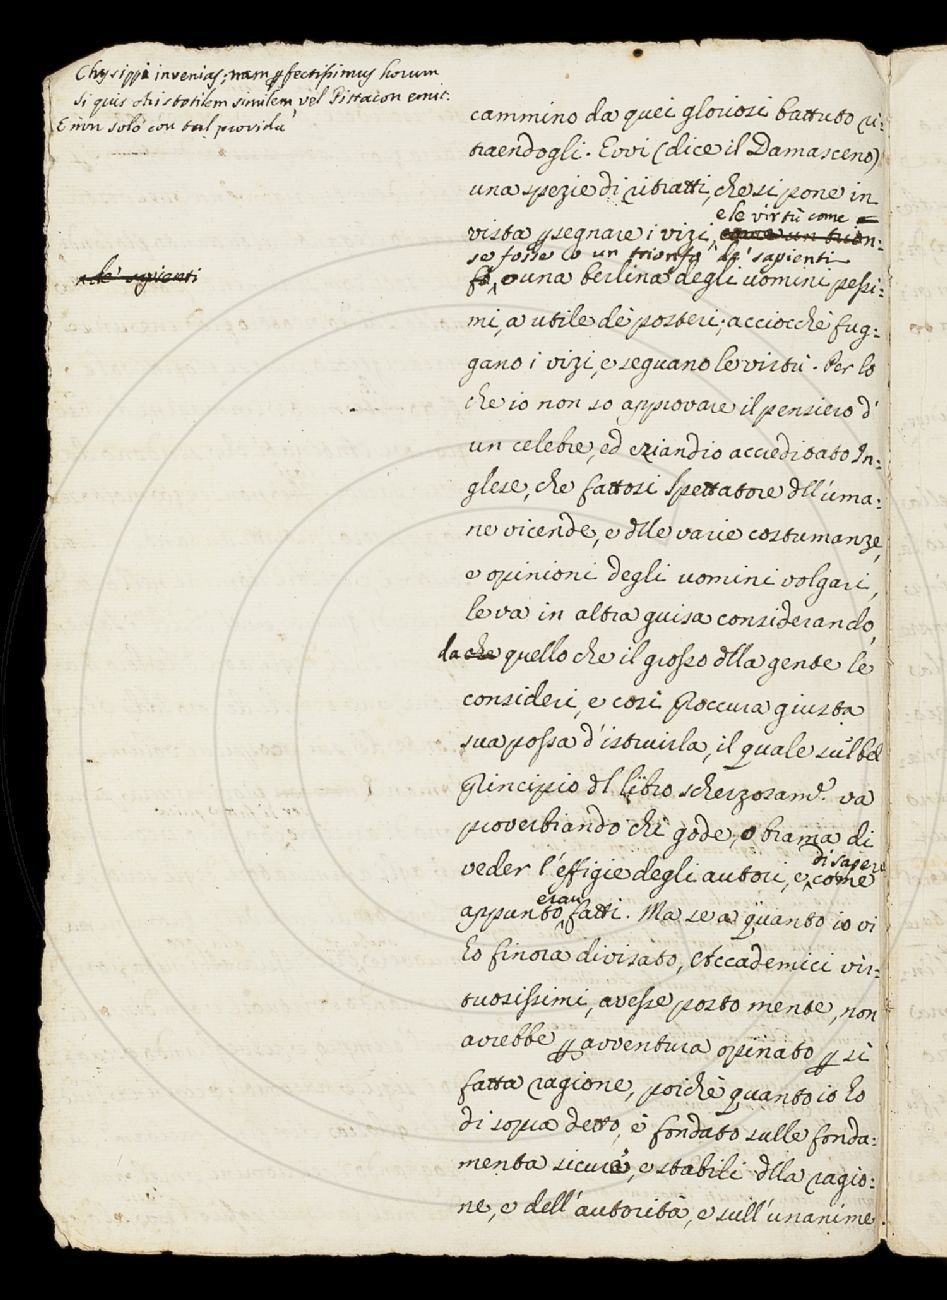 Chrysippi invenias; nam pfectissimus horum
Si quis Aristotilem similem, vel Pittacon emit:
E non solo con tal providu
cammino da quei gloriosi battuto ri:
traendogli. Evvi (dice il Damasceno)
una spezie di ritratti, che si pone in
e le virtù come =
vista p segnare i vizi, come un trion:
se fosse o un trionfo de' sapienti
fo, o una berlina degli uomini pessi:
de' sapienti
mi, a utile de' posteri; acciocchè fug:
gano i vizi, e seguano le virtù. Per lo
che io non so approvare il pensiero d'
un celebre, ed eziandio accreditato In:
glese, che fattosi Spettatore dll'uma:
ne vicende, e dlle varie costumanze,
e opinioni degli uomini volgari,
le va in altra guisa considerando,
da che quello che il grosso dlla gente le
consideri, e così proccura giusta
sua possa d'istruirla, il quale sul bel
principio dl libro scherzosamte. va
proverbiando chi gode, o brama di
di sapere
veder l'effigie degli autori, e come
eran
appunto fatti. Ma se a quanto io vi
ho finora divisato, Accademici vir:
tuosissimi, avesse posto mente, non
avrebbe p avventura opinato p sì
fatta ragione, poichè quanto io ho
di sopra detto, è fondato sulle fonda:
menta sicure, e stabili dlla ragio:
ne, e dell'autorità, e sull'unanime